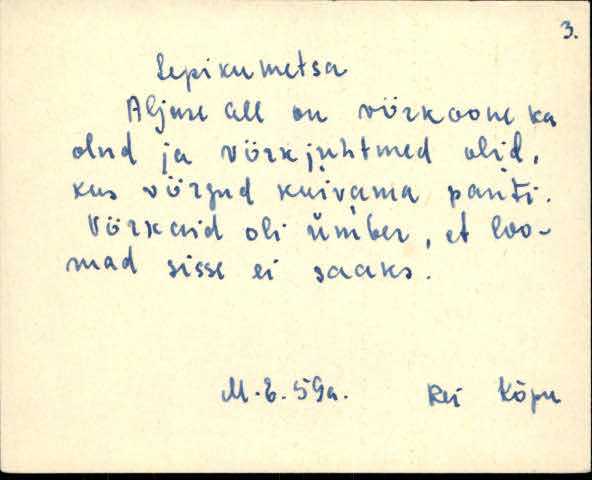 3.
Lepikumetsa
Aljase all on võrkoone ka
olnd ja võrkjuhtmed olid,
kus võrgud kuivama panti.
Võrkaid oli ümber, et loo-
mad sisse ei saaks.
M.E. 59a. Rei Kõpu